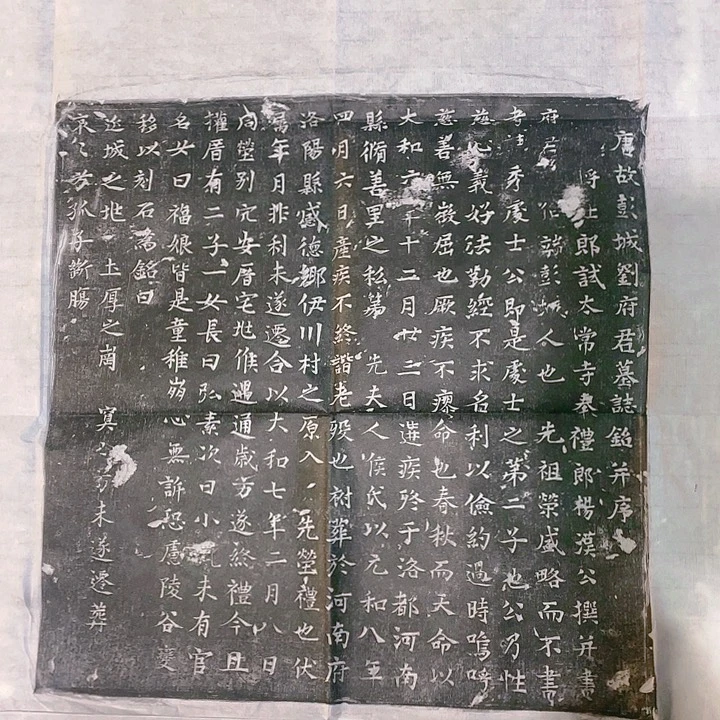 唐故彭城劉府君墓誌銘并序
將仕郎試太常寺奉禮郎楊漢公撰并書
府君 彭城人也 先祖榮盛略而不書
考 秀處士公即是處士之第二子也公乃性
慈 義好法勤經不求名利以儉約過時嗚呼
慈善無徵屈也厥疾不瘳命也春秋而天命以
大和六年十二月廿二日遘疾終于洛都河南
縣脩善里之私第 先夫人侯氏以元和八年
四月六日產疾不終諧老歿也祔葬於河南府
洛陽縣感德鄉伊川村之原入 先塋禮也伏
為年月非利未遂遷合以大和七年二月八日
同塋別穴安厝宅兆候遇通歲方遂終禮今且
權厝有二子一女長曰弘素次曰小 未有官
名女曰福娘皆是童稚崩心無訴恐慮陵谷變
移以刻石為銘曰
近城之地 土厚之崗 冥 未遂遷葬
哀 孤子斷腸